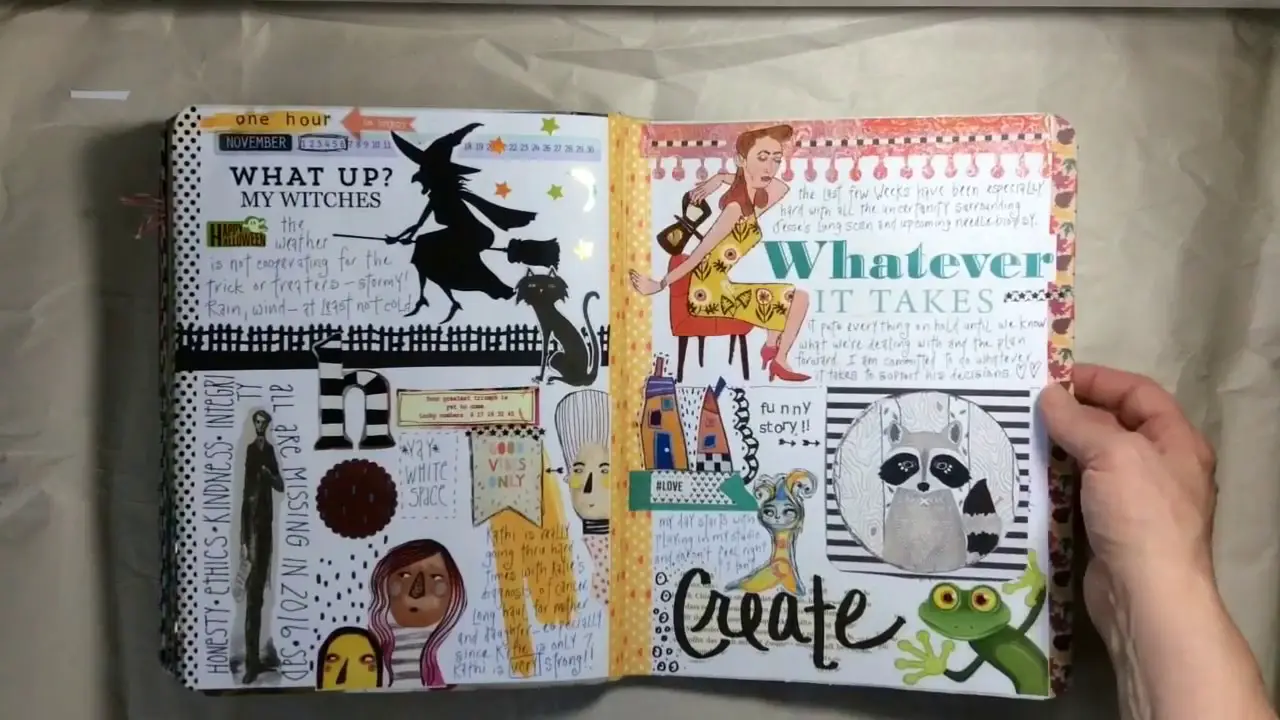 one hour
NOVEMBER 1 2 3 4 5 6 7 8 9 10 11 18 19 20 21 22 23 24 25 26 27 28 29 30
WHAT UP?
MY WITCHES
HAPPY
HALLOWEEN
the
weather
is not cooperating for the
trick or treaters - stormy!
Rain, wind - at least not cold
HONESTY • ETHICS • KINDNESS • INTEGRI
TY
all are missing in 2016 Das
h
Your greatest triumph is
yet to come
Lucky numbers
YAY
WHITE
SPACE
GOOD
VIBES
ONLY
Kathi is really
going thru hard
times with Katie's
diagnosis of cancer
Long haul for mother
and daughter - especially
since Katie is only 7
Kathi is very strong!!
the last few weeks have been especially
hard with all the uncertainty surrounding
Jesse's lung scan and upcoming needle biopsy.
Whatever
IT TAKES
it puts everything on hold until we know
what we're dealing with and the plan
forward. I am committed to do whatever
it takes to support his decisions ♡♡
funny
story!!
#LOVE
my day starts with
playing in my studio
and doesn't feel right
if I don't
Create